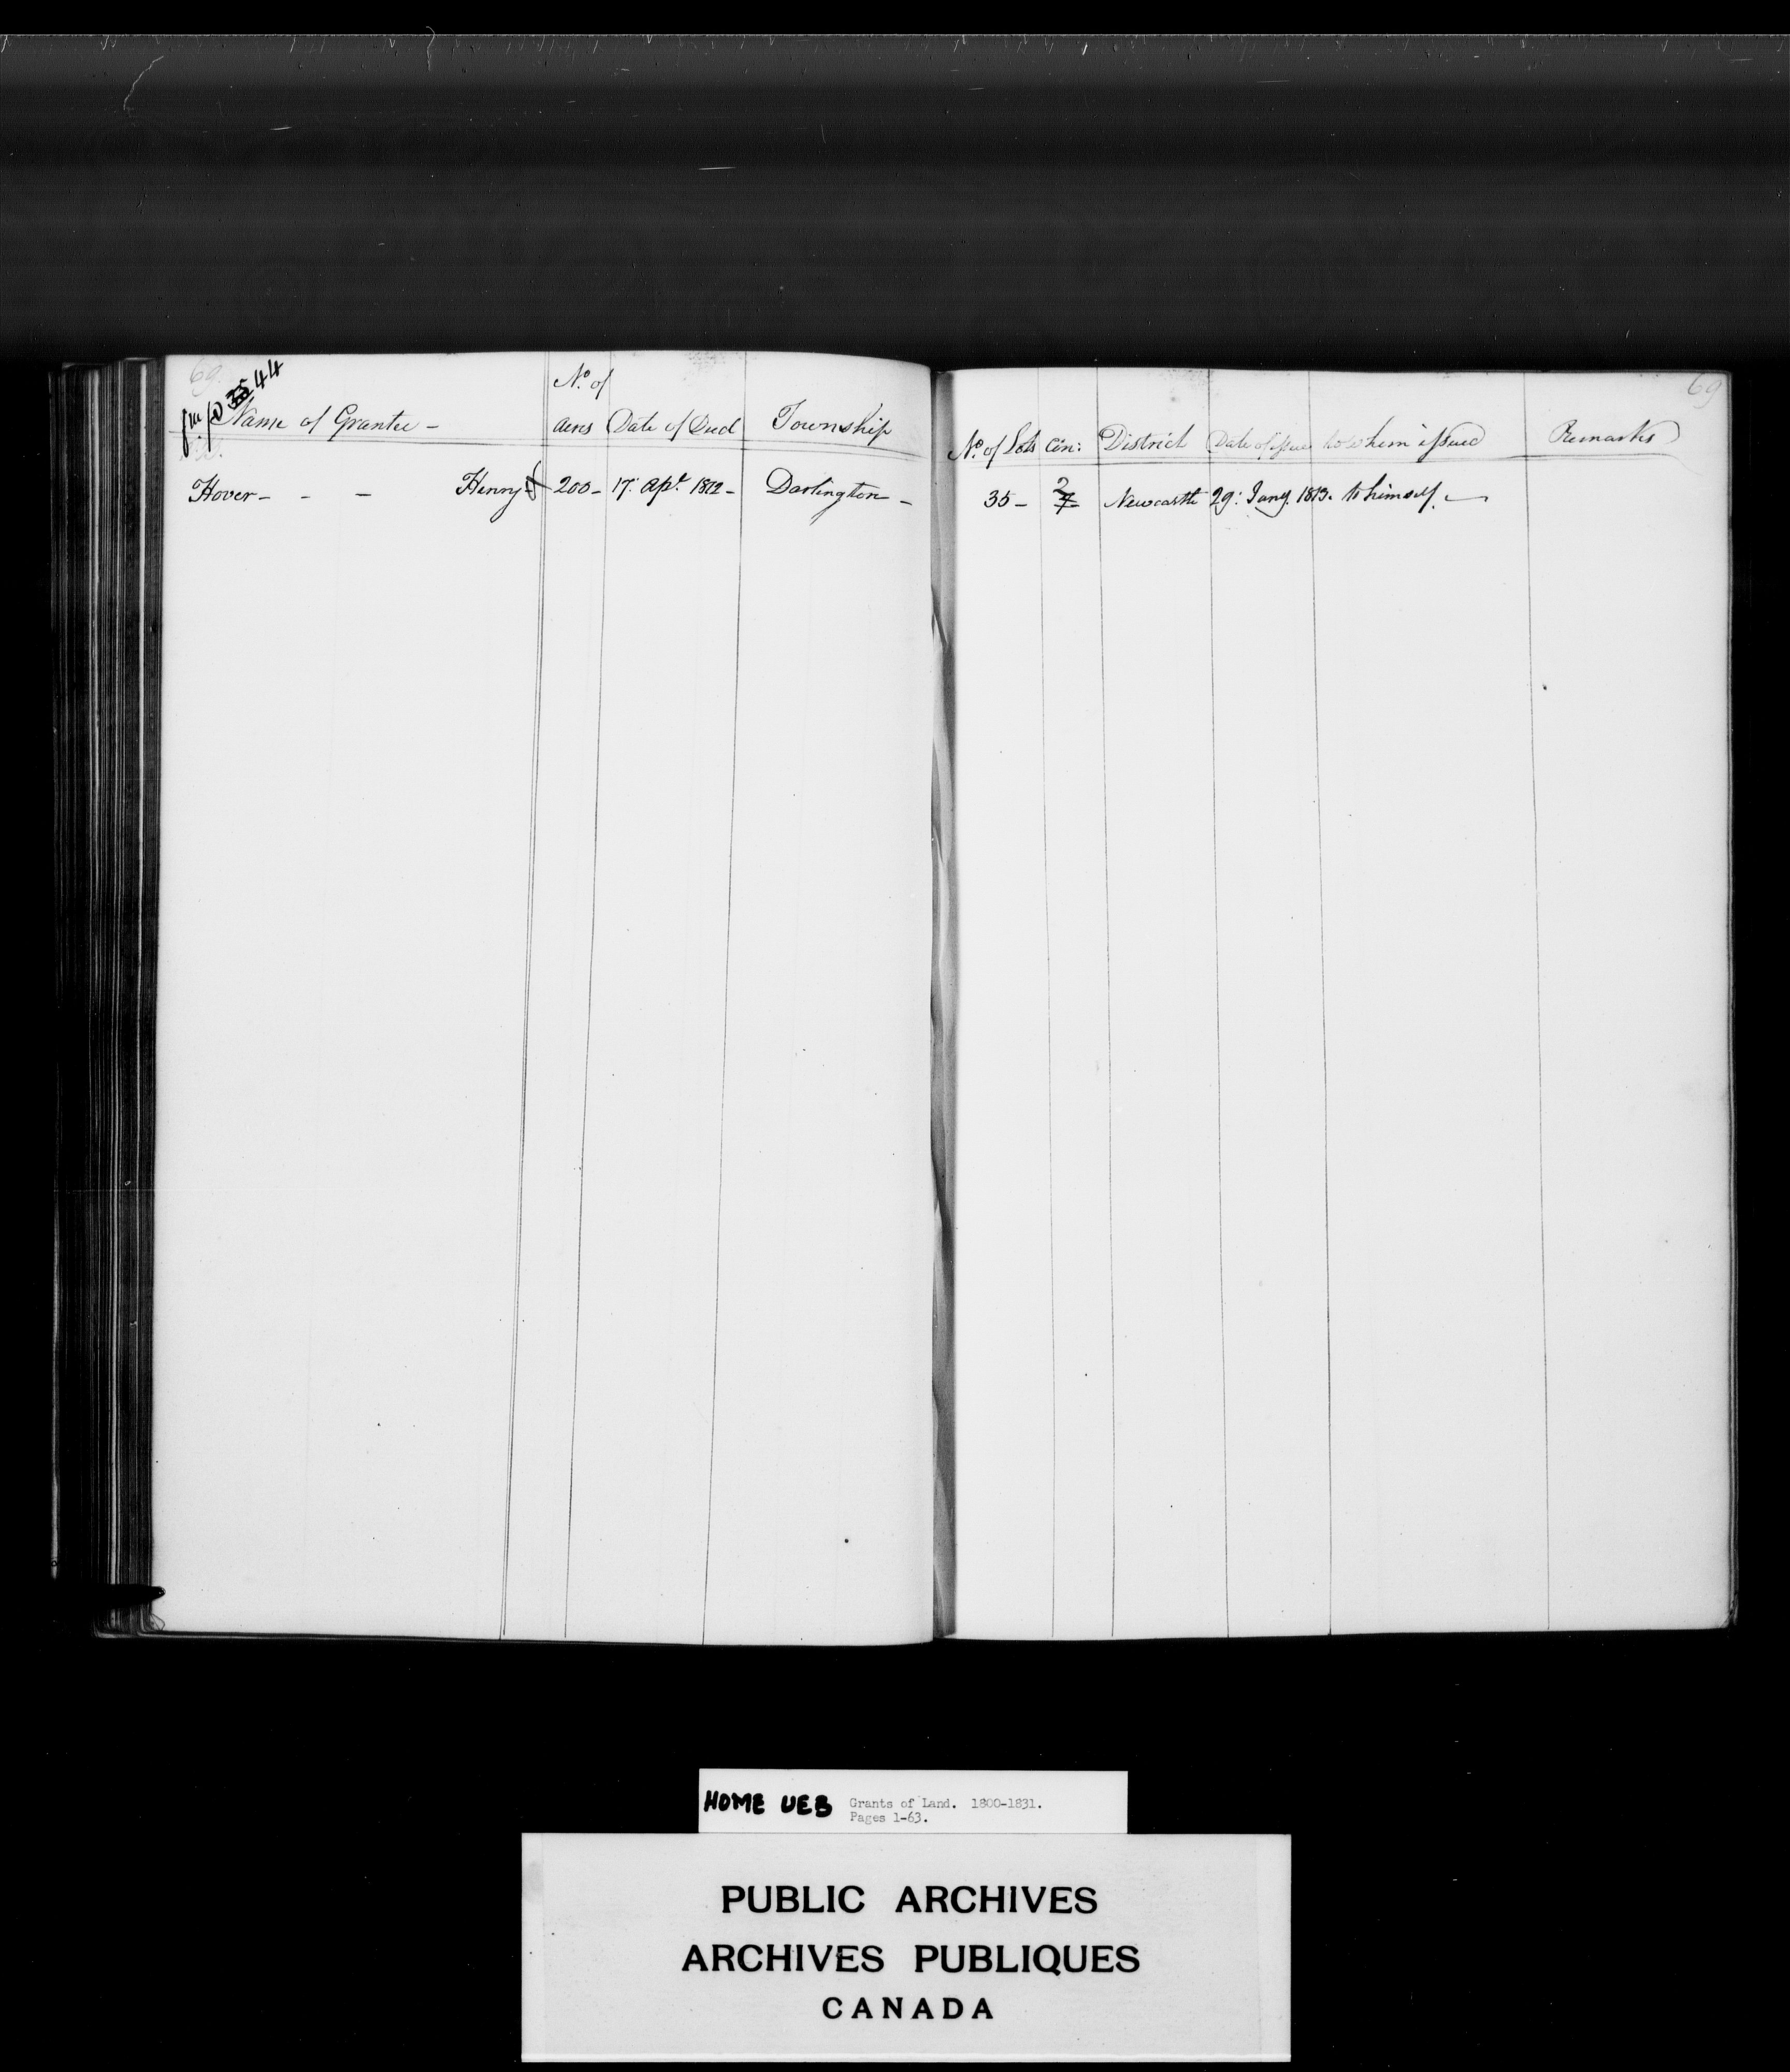 69
35 44
Name of Grantee - No. of acres Date of Deed Township
No. of Lots Con: District Date of issue to whom issued Remarks
69
Hover - - - Henry 200 - 17: Apl. 1812 - Darlington -
35 - 2 7 Newcastle 29: Jany. 1813. to himself. -
HOME UEB Grants of Land. 1800-1831.
Pages 1-63.
PUBLIC ARCHIVES
ARCHIVES PUBLIQUES
CANADA